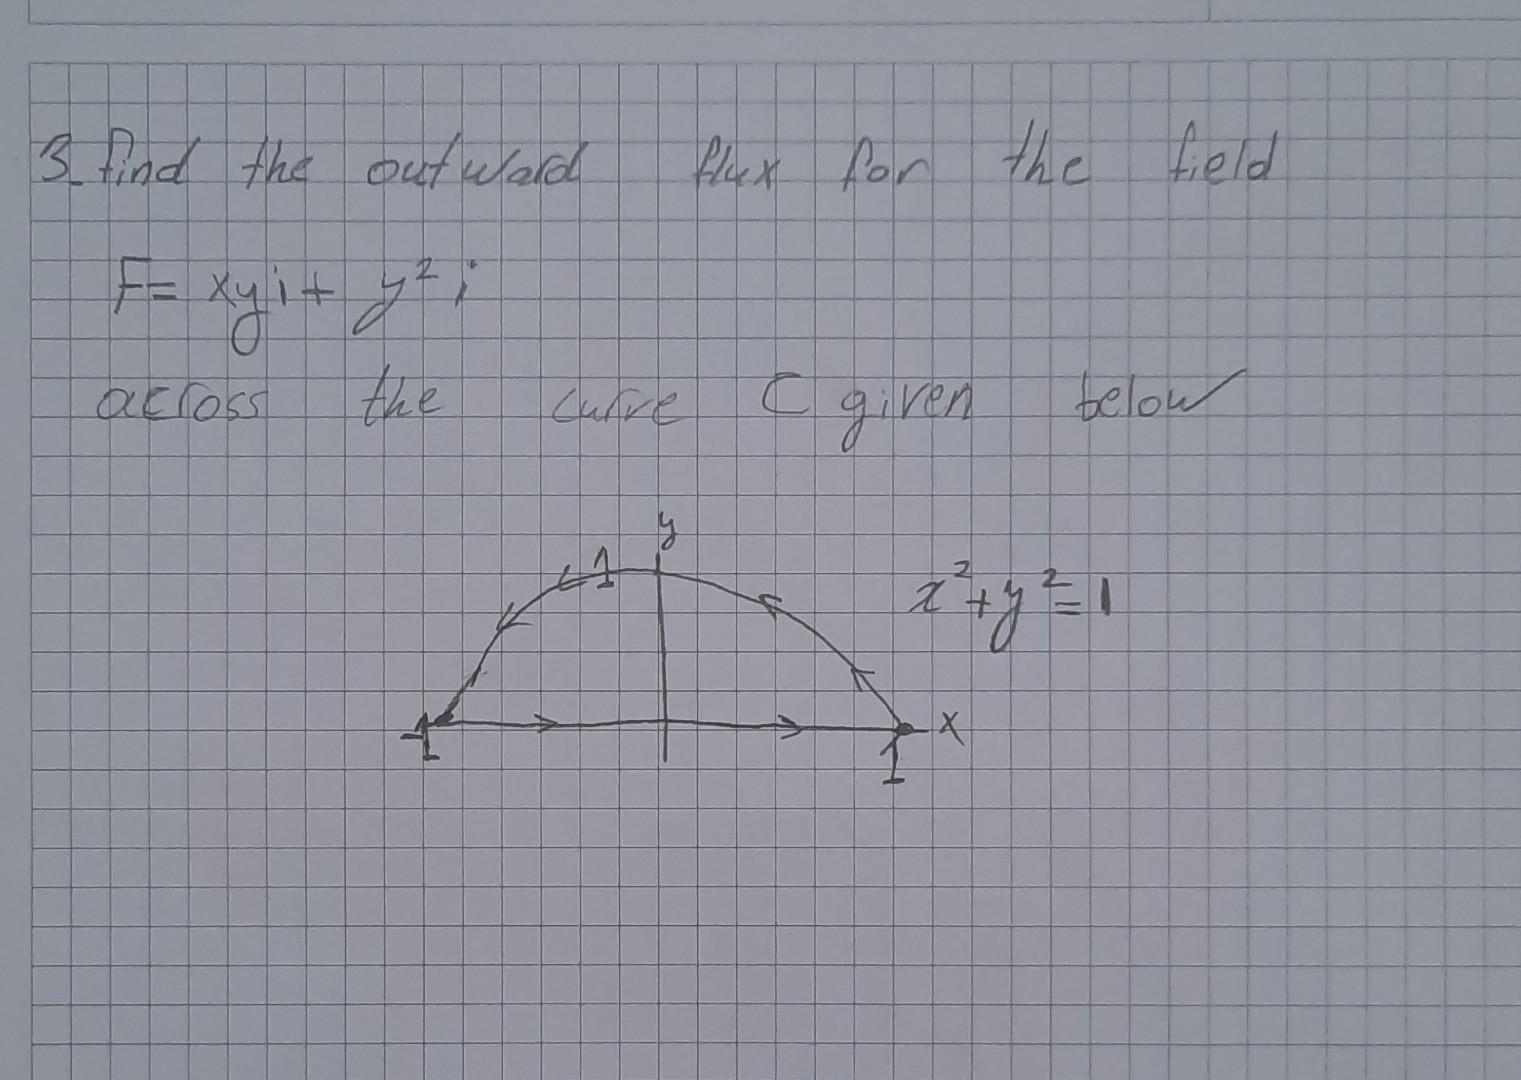 3. find the outward flux for the field
F= xyi+ y² j
across the curve C given below
y
1
x²+y²=1
-1
x
1